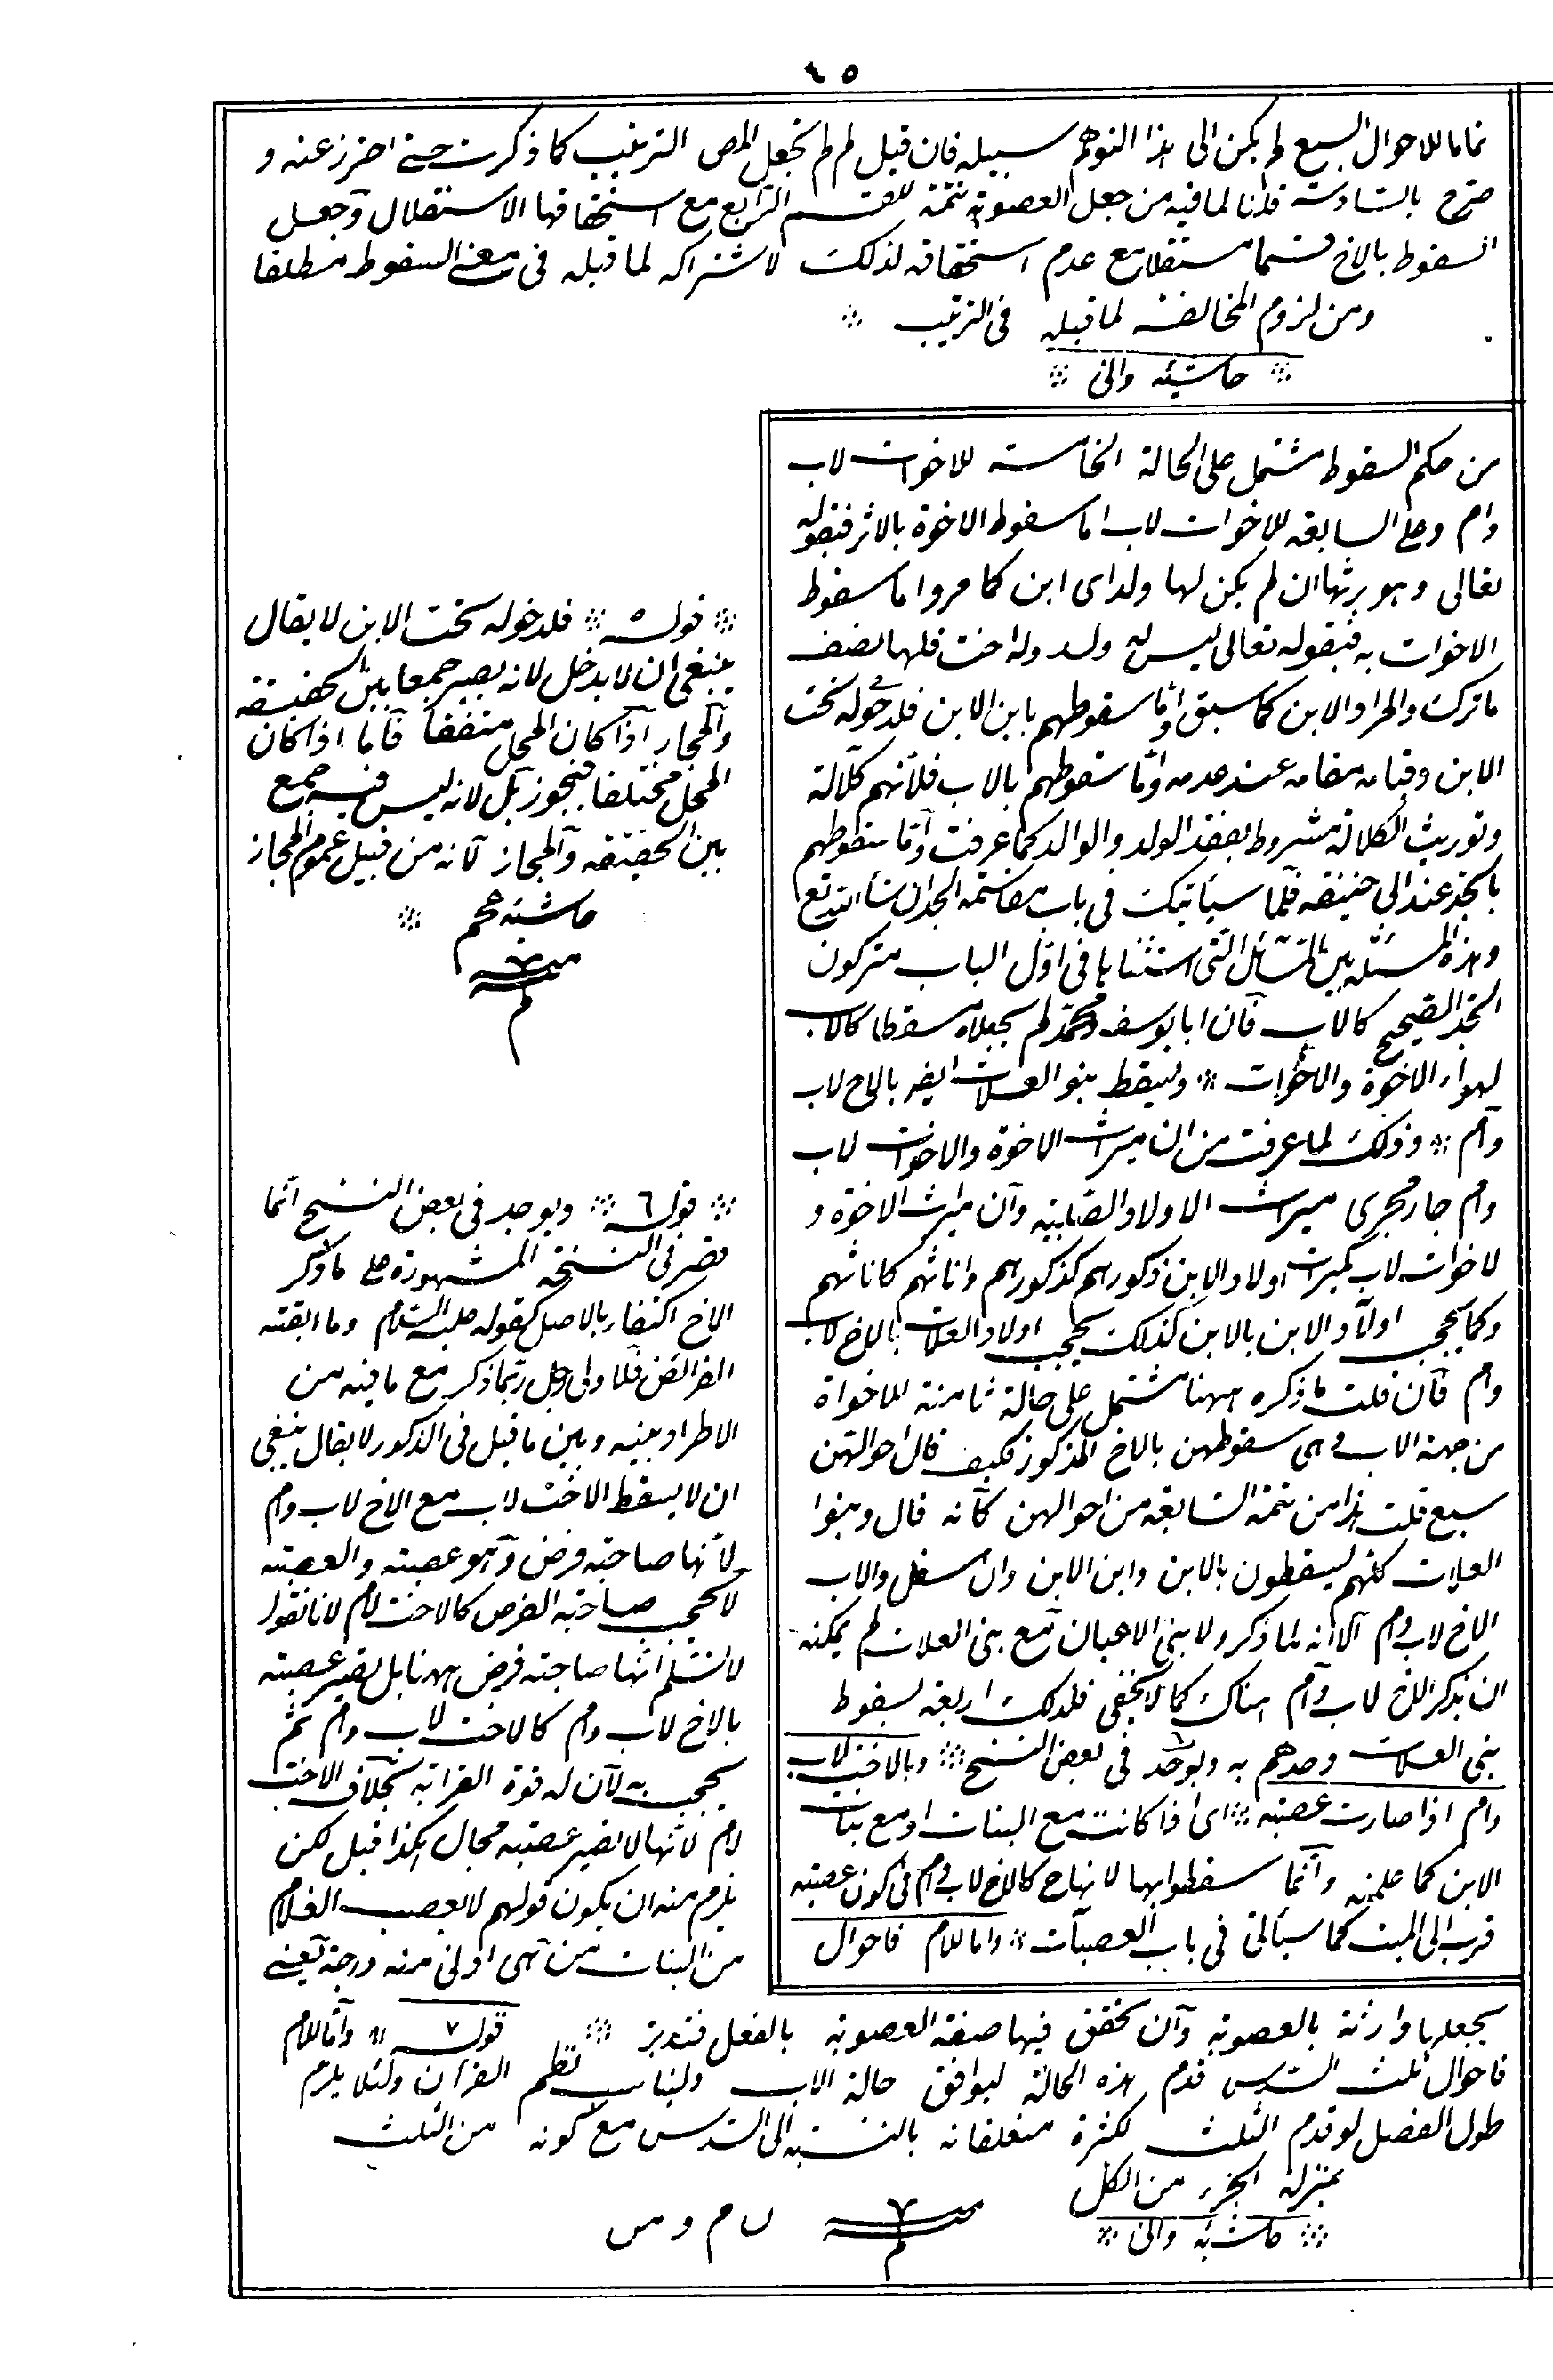 ٤٥
تماما للاحوال السبع لم يكن الى هذا التوهم سبيله فان قيل لم لم يجعل المص الترتيب كما ذكرت حتى احترز عنه و
صرح بالسادسة قلنا لما فيه من جعل العصوبة تتمة للقسم الرابع مع استحقاقها الاستقلال وجعل
السقوط بالاخ قسما مستقلا مع عدم استحقاقه لذلك لاشتراكه لما قبله فى معنى السقوط مطلقا
ومن لزوم المخالفة لما قبله فى الترتيب
حاشيه وانى
من حكم السقوط مشتمل على الحالة الخامسة للاخوات لاب
وام وعلى السابعة للاخوات لاب اما سقوط الاخوة بالاثر فبقوله
تعالى وهو يرثها ان لم يكن لها ولد اى ابن كما مر واما سقوط
الاخوات به فبقوله تعالى ليس له ولد وله اخت فلها نصف
ما ترك والمراد الابن كما سبق واما سقوطهم بابن الابن فلدخوله تحت
الابن وقيامه مقامه عند عدمه واما سقوطهم بالاب فلأنهم كلالة
وتوريث الكلالة مشروط بفقد الولد والوالد كما عرفت واما سقوطهم
بالجد عند ابى حنيفه فلما سيأتيك فى باب مقاسمة الجد ان شاء الله تع
وهذه المسئلة من المسائل التى استثناها فى اول الباب متركون
الجد الصحيح كالاب فان ابا يوسف ومحمد لم يجعلاه مسقطا كالاب
لهؤلاء الاخوة والاخوات ويسقط بنو العلات ايضا بالاخ لاب
وام وذلك لما عرفت من ان ميراث الاخوة والاخوات لاب
وام جار مجرى ميراث الاولاد الصلبيه وان ميراث الاخوة و
لاخوات لاب كميراث اولاد الابن ذكورهم كذكورهم واناثهم كاناثهم
وكما يحجب اولاد الابن بالابن كذلك يحجب اولاد العلات بالاخ لاب
وام فان قلت ما ذكره ههنا مشتمل على حالة ثامنة للاخوات
من جهة الاب وهى سقوطهن بالاخ المذكور فكيف قال احوالهن
سبع قلت هذا من تتمة السابعة من احوالهن كأنه قال وبنوا
العلات كلهم يسقطون بالابن وابن الابن وان سفل والاب
الاخ لاب وام الا انه لما ذكر ولا بنى الاعيان مع بنى العلات لم يمكنه
ان يذكر الاخ لاب وام هناك كما لا يخفى فلذلك اربعة لسقوط
بنى العلات وحدهم به ويوجد ٦ فى بعض النسخ وبالاخت لاب
وام اذا صارت عصبة اى اذا كانت مع البنات او مع بنات
الابن كما علمته وانما سقطوا بها لانها ح كالاخ لاب وام فى كون عصبته
قرب الى الميت كما سيأتى فى باب العصبات واما للام فاحوال
قوله ٥ فلدخوله تحت الابن لا يقال
ينبغى ان لا يدخل لانه يصير جمعا بين الحقيقة
والمجاز اذا كان المحل متفقا فاما اذا كان
المحل مختلفا فيجوز بل لانه ليس فيه جمع
بين الحقيقه والمجاز لانه من قبيل عموم المجاز
حاشيه عجم
قوله ٦ ويوجد فى بعض النسخ انما
قصر فى النسخة المشهورة على ما ذكر
الاخ اكتفاء بالاصل كقوله عليه السلام وما ابقته
الفرائض فلاولى رجل ذكر مع ما فيه من
الاطراد بينه وبين ما قبل فى الذكور لا يقال ينبغى
ان لا يسقط الاخت لاب مع الاخ لاب وام
لانها صاحبة فرض وهو عصبته والعصبة
لا يحجب صاحبة الفرض كالاخت لام لانا نقول
لا نسلم انها صاحبة فرض ههنا بل يصير عصبته
بالاخ لاب وام كالاخت لاب وام ثم
يحجب به لان له قوة القرابة بخلاف الاخت
لام لانها لا يصير عصبته مجال هكذا قيل لكن
يلزم منه ان يكون قولهم لا يعصب الغلام
من البنات من هى اولى منه درجة يعنى
يجعلها وارثة بالعصوبة وان تحقق فيها صفة العصوبة بالفعل فتدبر قوله ٧ واما للام
فاحوال ثلث السدس قدم هذه الحالة ليوافق حالة الاب وليناسب نظم القرآن ولئلا يلزم
طول الفصل لو قدم الثلث لكثرة متعلقاته بالنسبة الى السدس مع كونه من الثلث
بمنزلة الجزء من الكل
حاشيه وانى